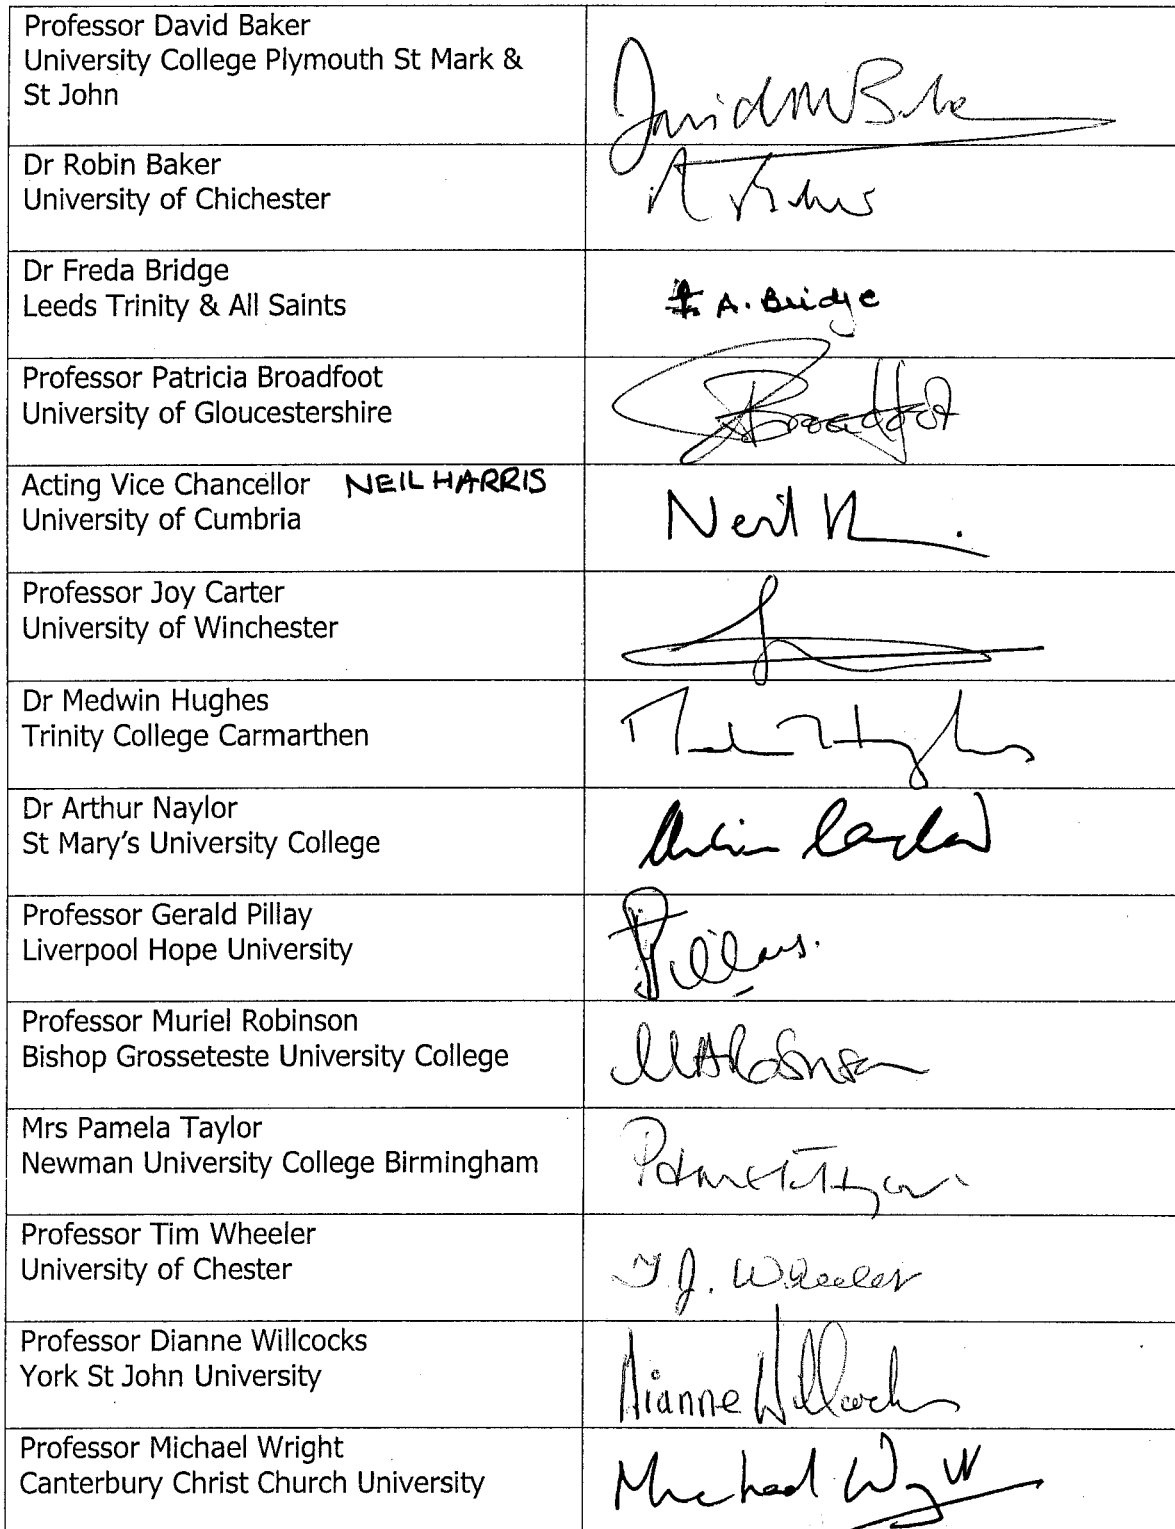 Professor David Baker
University College Plymouth St Mark &
St John
Dr Robin Baker
University of Chichester
Dr Freda Bridge
Leeds Trinity & All Saints
F. A. Bridge
Professor Patricia Broadfoot
University of Gloucestershire
Broadfoot
Acting Vice Chancellor NEIL HARRIS
University of Cumbria
Neil
Professor Joy Carter
University of Winchester
Dr Medwin Hughes
Trinity College Carmarthen
Dr Arthur Naylor
St Mary's University College
Professor Gerald Pillay
Liverpool Hope University
Professor Muriel Robinson
Bishop Grosseteste University College
MARobinson
Mrs Pamela Taylor
Newman University College Birmingham
Professor Tim Wheeler
University of Chester
T.J. Wheeler
Professor Dianne Willcocks
York St John University
Dianne Willcocks
Professor Michael Wright
Canterbury Christ Church University
Michael Wright